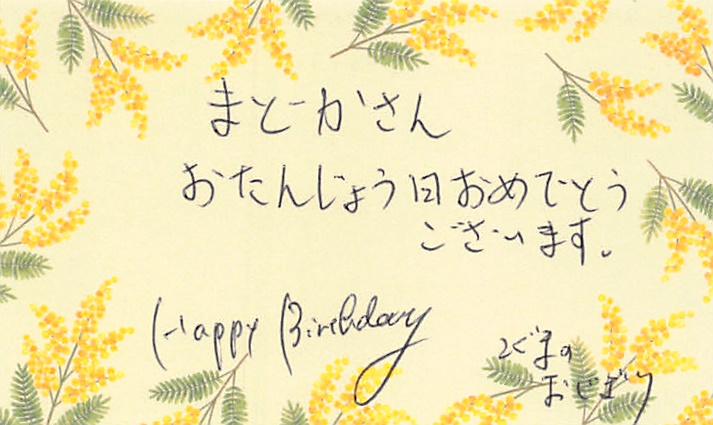 まどかさん
おたんじょう日おめでとう
ございます。
Happy Birthday
こぐまの
おにぎり